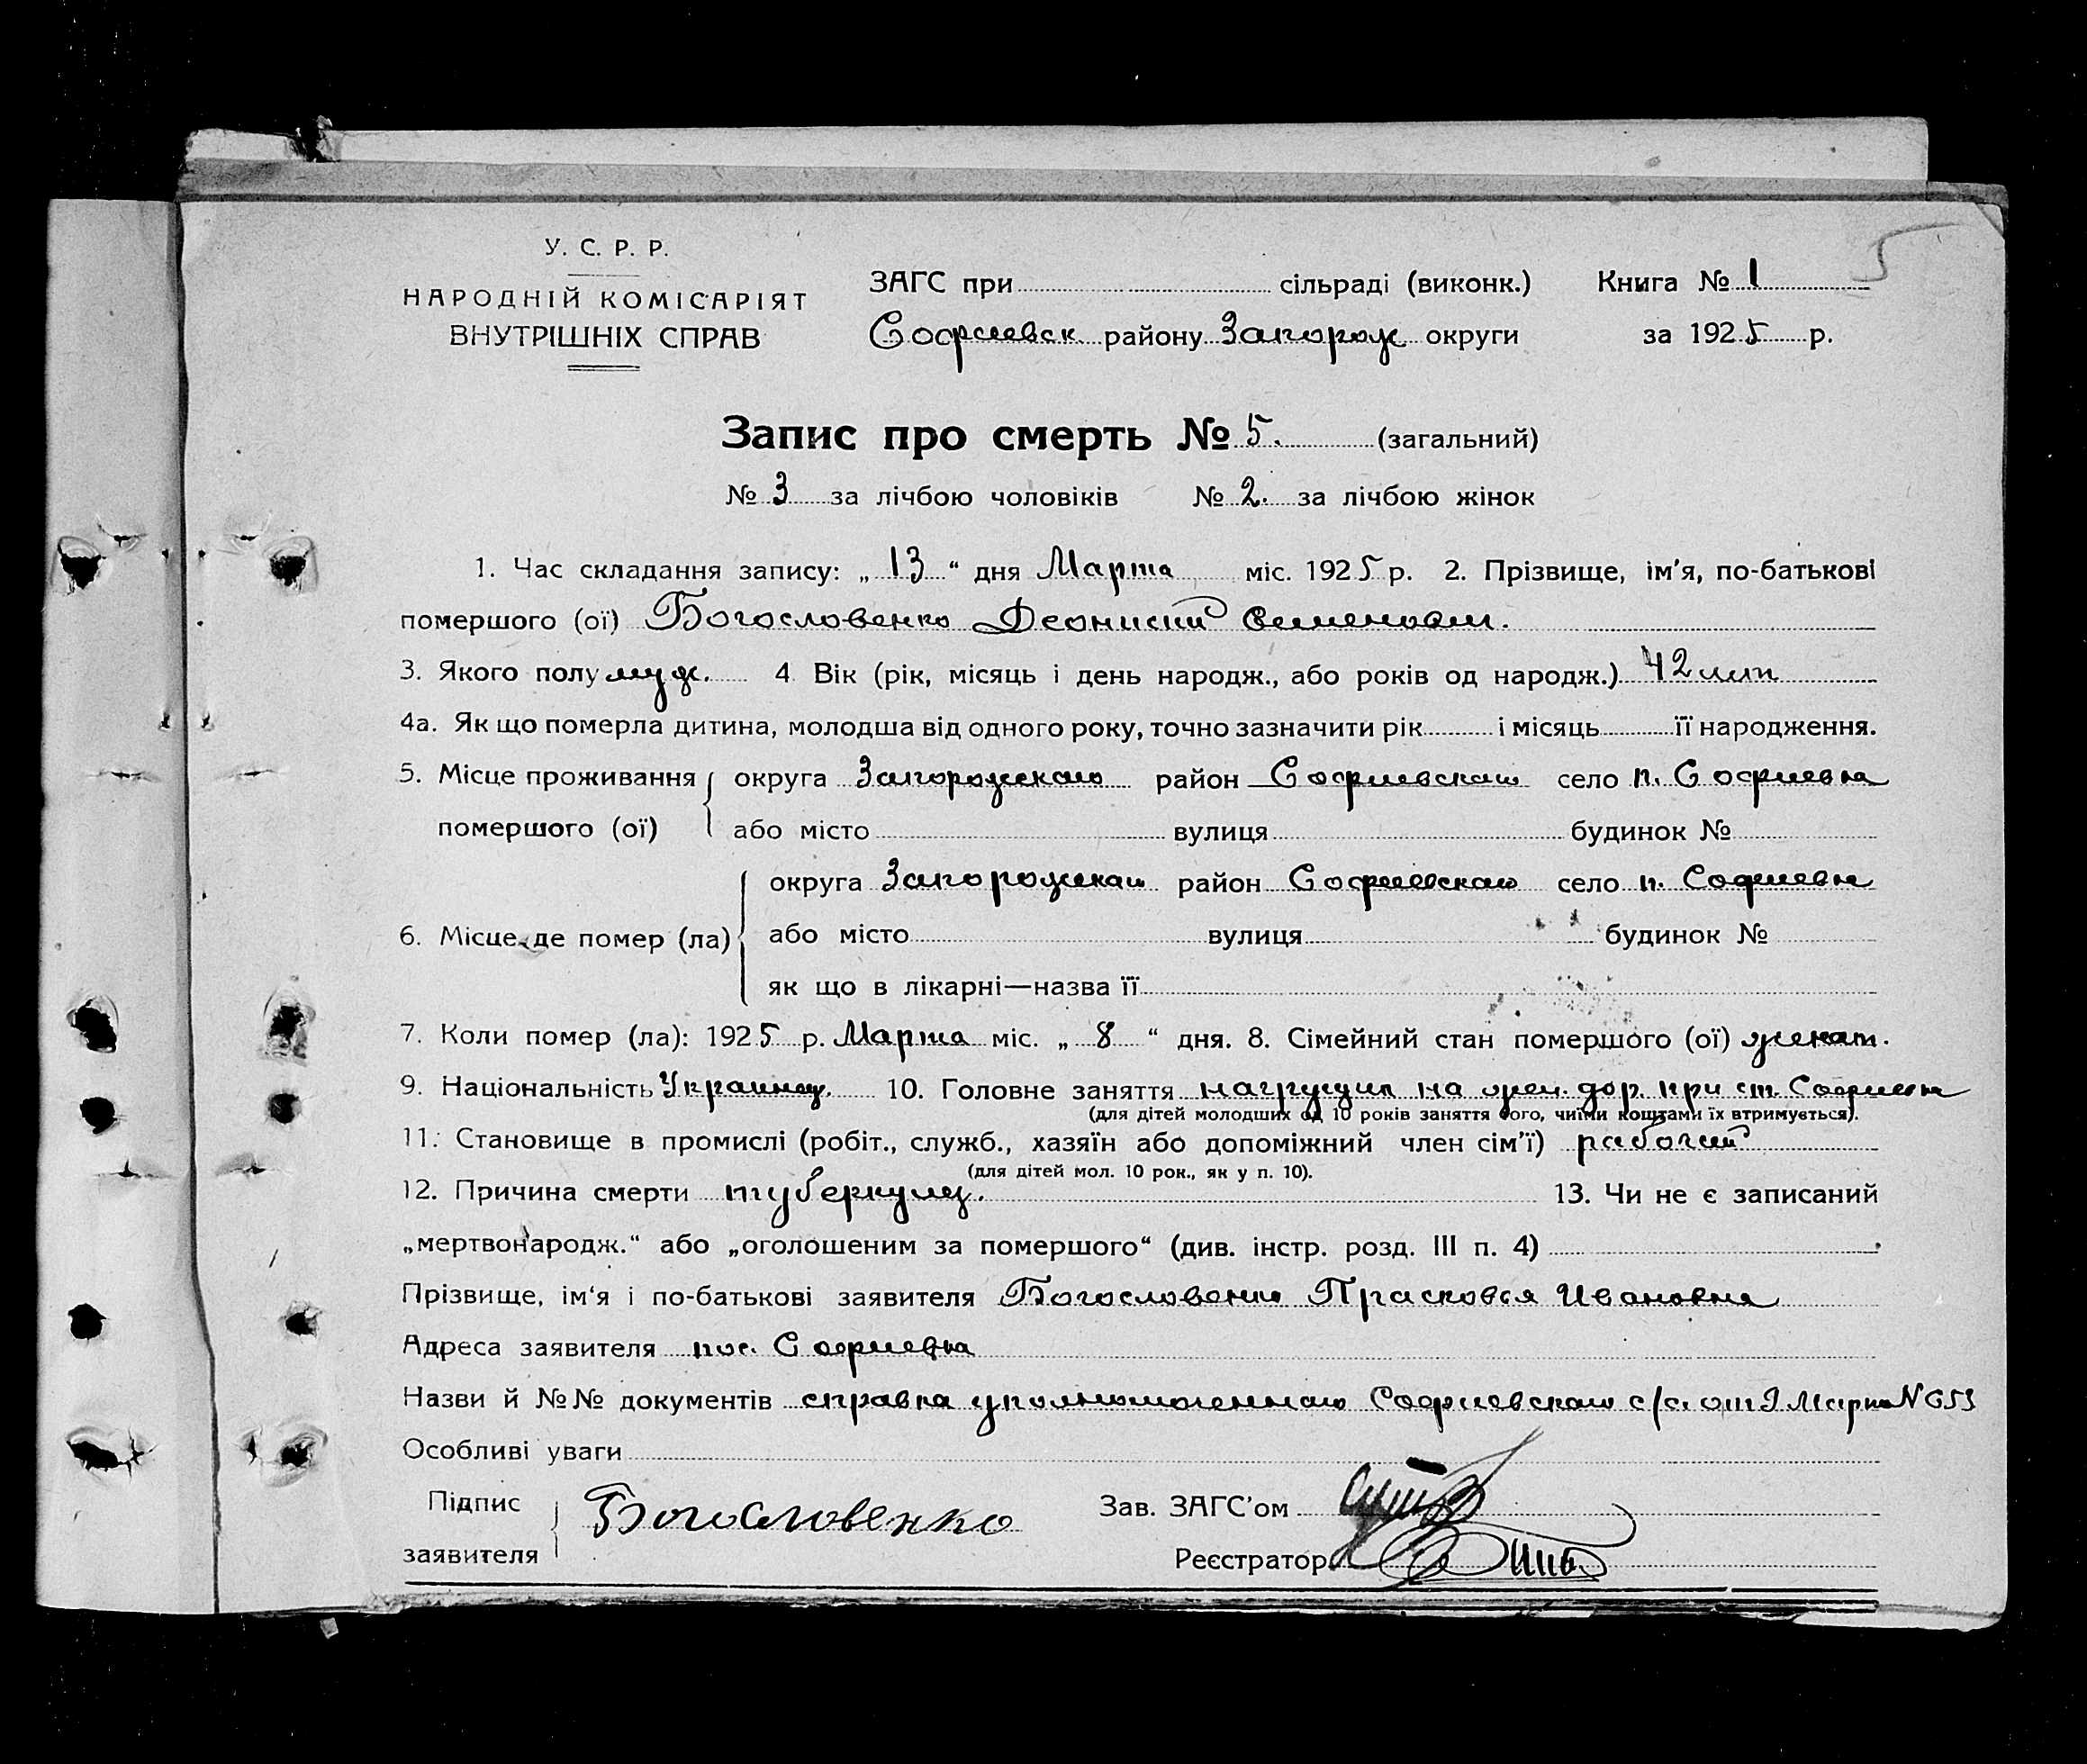 5
У. С. Р. Р.
НАРОДНІЙ КОМІСАРІЯТ
ВНУТРІШНІХ СПРАВ
ЗАГС при сільраді (виконк.) Книга № 1
Софиевск району Запорож округи за 1925 р.
Запис про смерть № 5. (загальний)
№ 3 за лічбою чоловіків № 2. за лічбою жінок
1. Час складання запису: „13“ дня Марта міс. 1925 р. 2. Прізвище, ім'я, по-батькові
помершого (ої) Богословенко Деонисий Семенович.
3. Якого полу муж. 4 Вік (рік, місяць і день народж., або років од народж.) 42 лет
4а. Як що померла дитина, молодша від одного року, точно зазначити рік і місяць її народження.
5. Місце проживання округа Запорожскаго район Софиевскаго село п. Софиевка
помершого (ої) або місто вулиця будинок №
округа Запорожская район Софиевскаго село п. Софиевка
6. Місце, де помер (ла) або місто вулиця будинок №
як що в лікарні—назва її
7. Коли помер (ла): 1925 р. Марта міс. „8“ дня. 8. Сімейний стан помершого (ої) женат.
9. Національність Украинец. 10. Головне заняття на жел. дор. при ст. Софиевка
(для дітей молодших од 10 років заняття того, чиїми коштами їх втримується).
11. Становище в промислі (робіт., служб., хазяїн або допоміжний член сім'ї) рабочий
(для дітей мол. 10 рок., як у п. 10).
12. Причина смерти туберкулез. 13. Чи не є записаний
„мертвонародж.“ або „оголошеним за помершого“ (див. інстр. розд. III п. 4)
Прізвище, ім'я і по-батькові заявителя Богословенко Прасковья Ивановна
Адреса заявителя пос. Софиевка
Назви й №№ документів справка уполномоченнаго Софиевскаго с/с. от 9 Марта N 653
Особливі уваги
Підпис Богословенко Зав. ЗАГС'ом
заявителя Реєстратор